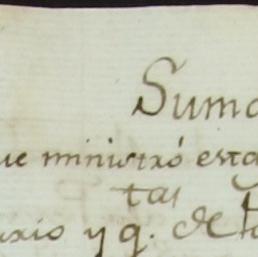 Suma
ue ministró esta
tas
uxio y q. de